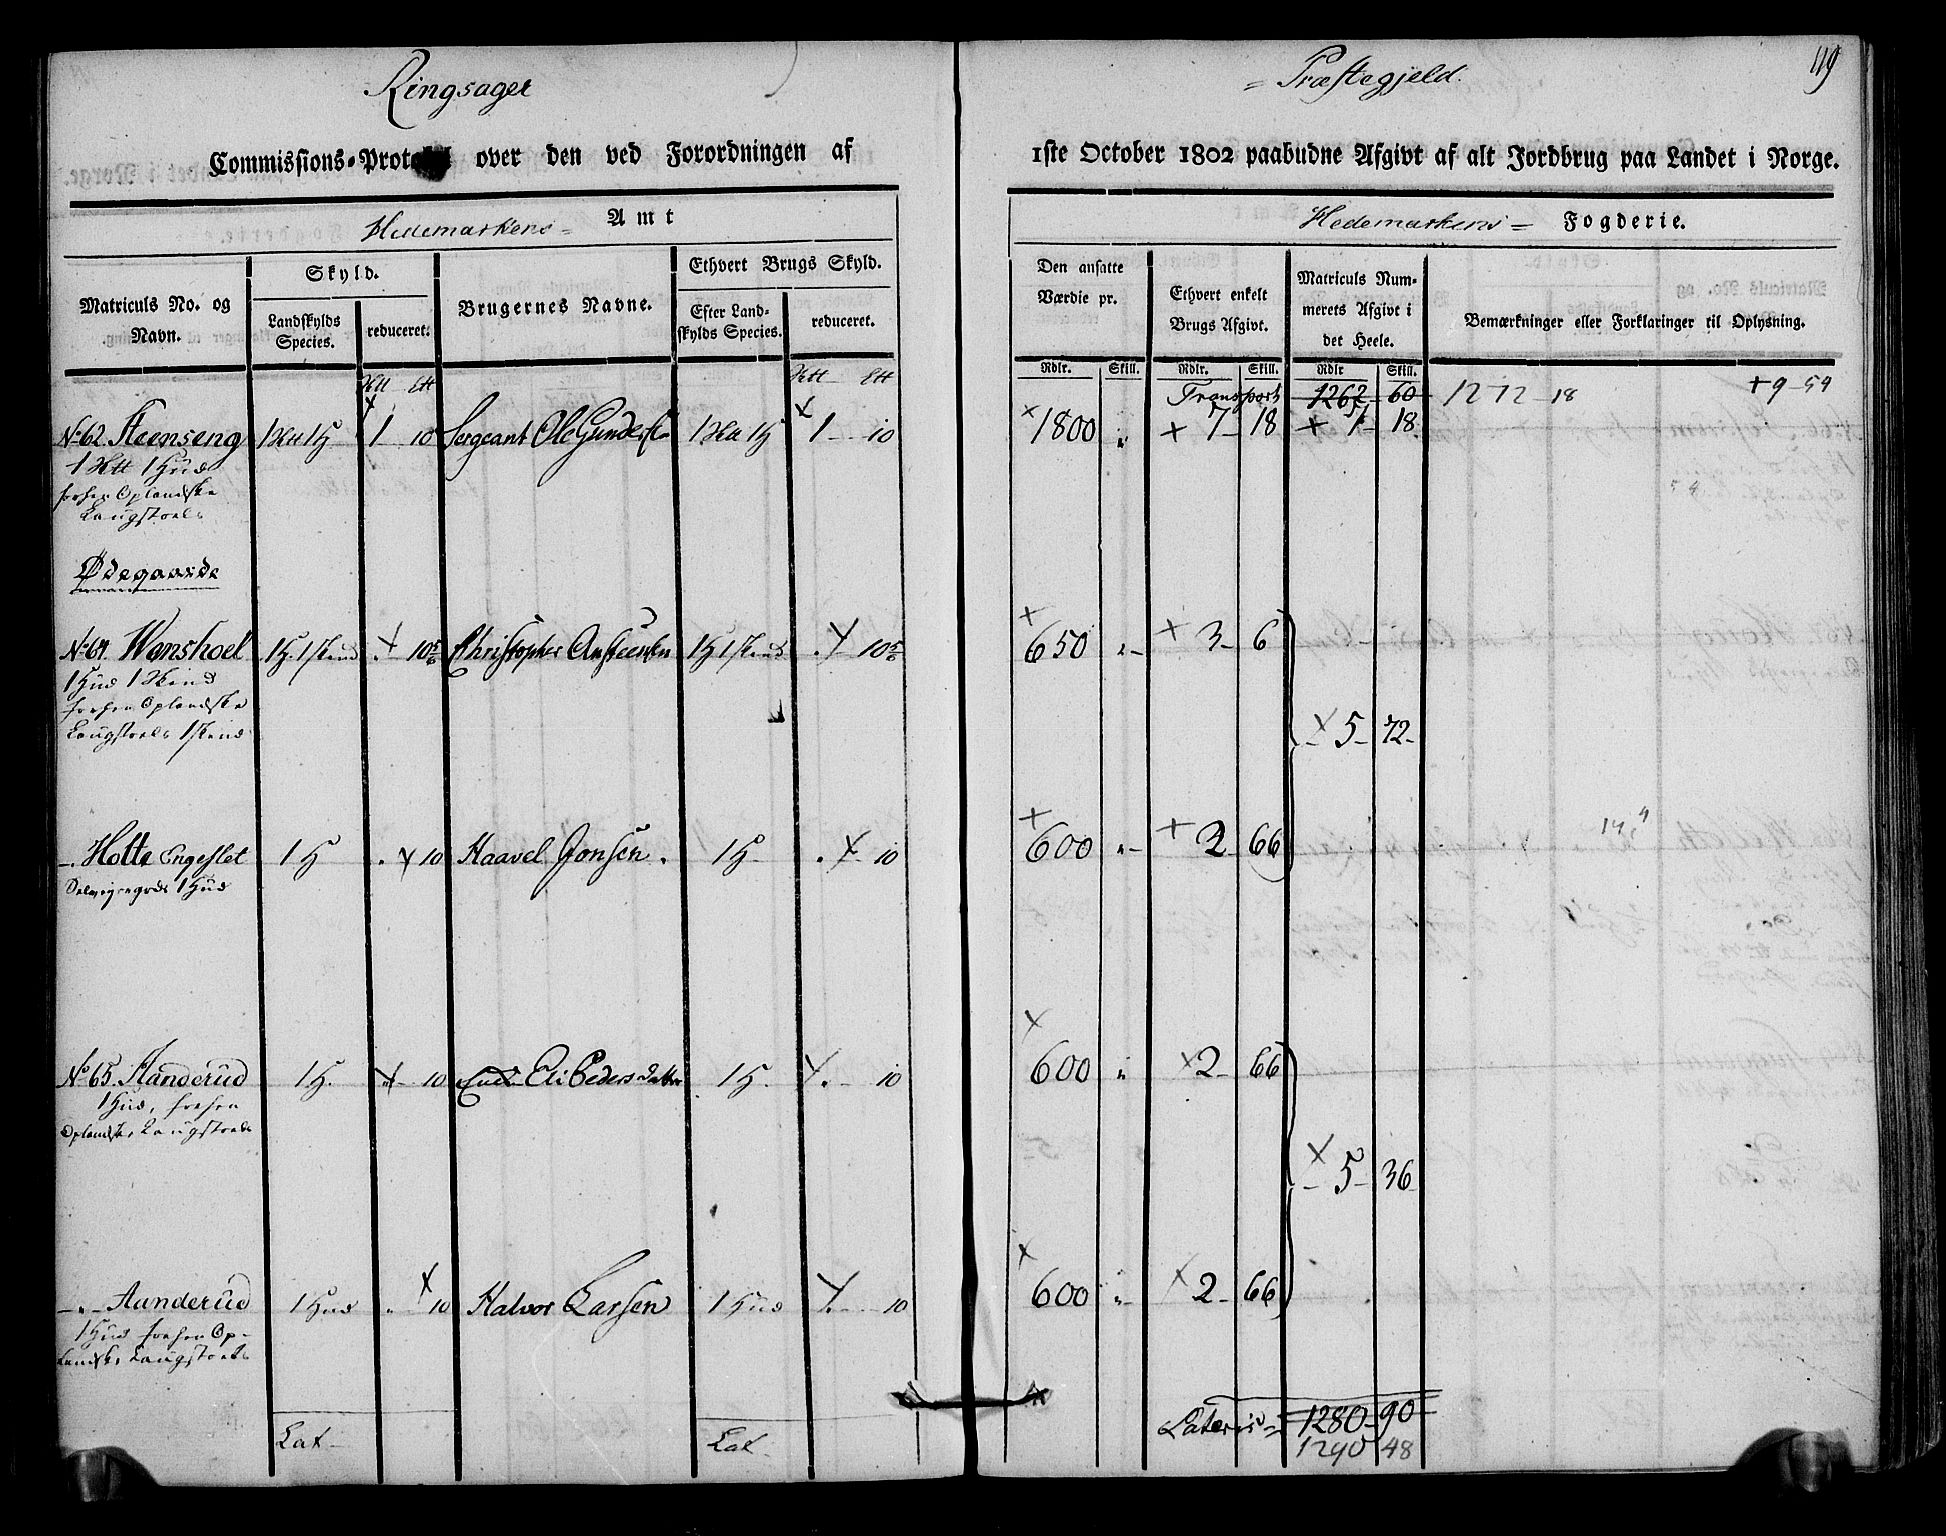 Ringsager = Præstegjeld. 119
Commissions-Protokol over den ved Forordningen af 1ste October 1802 paabudne Afgivt af alt Jordbrug paa Landet i Norge.
Hedemarkens = Amt
Hedemarkens = Fogderie.
Matriculs No. og Navn.
Skyld.
Landskylds Species.
reduceret.
Brugernes Navne.
Ethvert Brugs Skyld.
Efter Landskylds Species.
reduceret.
Den ansatte Værdie pr.
Ethvert enkelt Brugs Afgivt.
Matriculs Nummerets Afgivt i det Heele.
Bemærkninger eller Forklaringer til Oplysning.
Rdlr. Skill. Rdlr. Skill. Rdlr Skill.
Transport 1262 60 1272 18 +9-54
No 62. Steenseng 1 10 Sergeant Ole 1 10 1800 7 18 7 18
1 Hud
forhen Oplandske
Laugstoels
Ødegaarde
No 64. 1H. 1 skind 10 5/6 Christopher 1H 1 skind 10 5/6 650 3 6
1 Hud 1 Skind
forhen Oplandske
Laugstoels 1 skind
5 72
Holte Engeslet 1 H 10 Haavel Jonsen 1 H 10 600 2 66
1 Hud
No 65. Aanderud 1 H. 10 Eli Pedersdatter 1 H. 10 600 2 66
1 Hud, forhen
Oplandske Laugstoels
5 36
Aanderud 1 Hud 10 Halvor Larsen 1 Hud 10 600 2 66
1 Hud forhen Op-
landske Laugstoels
Lat Lat Lateris 1280 90
1290 48